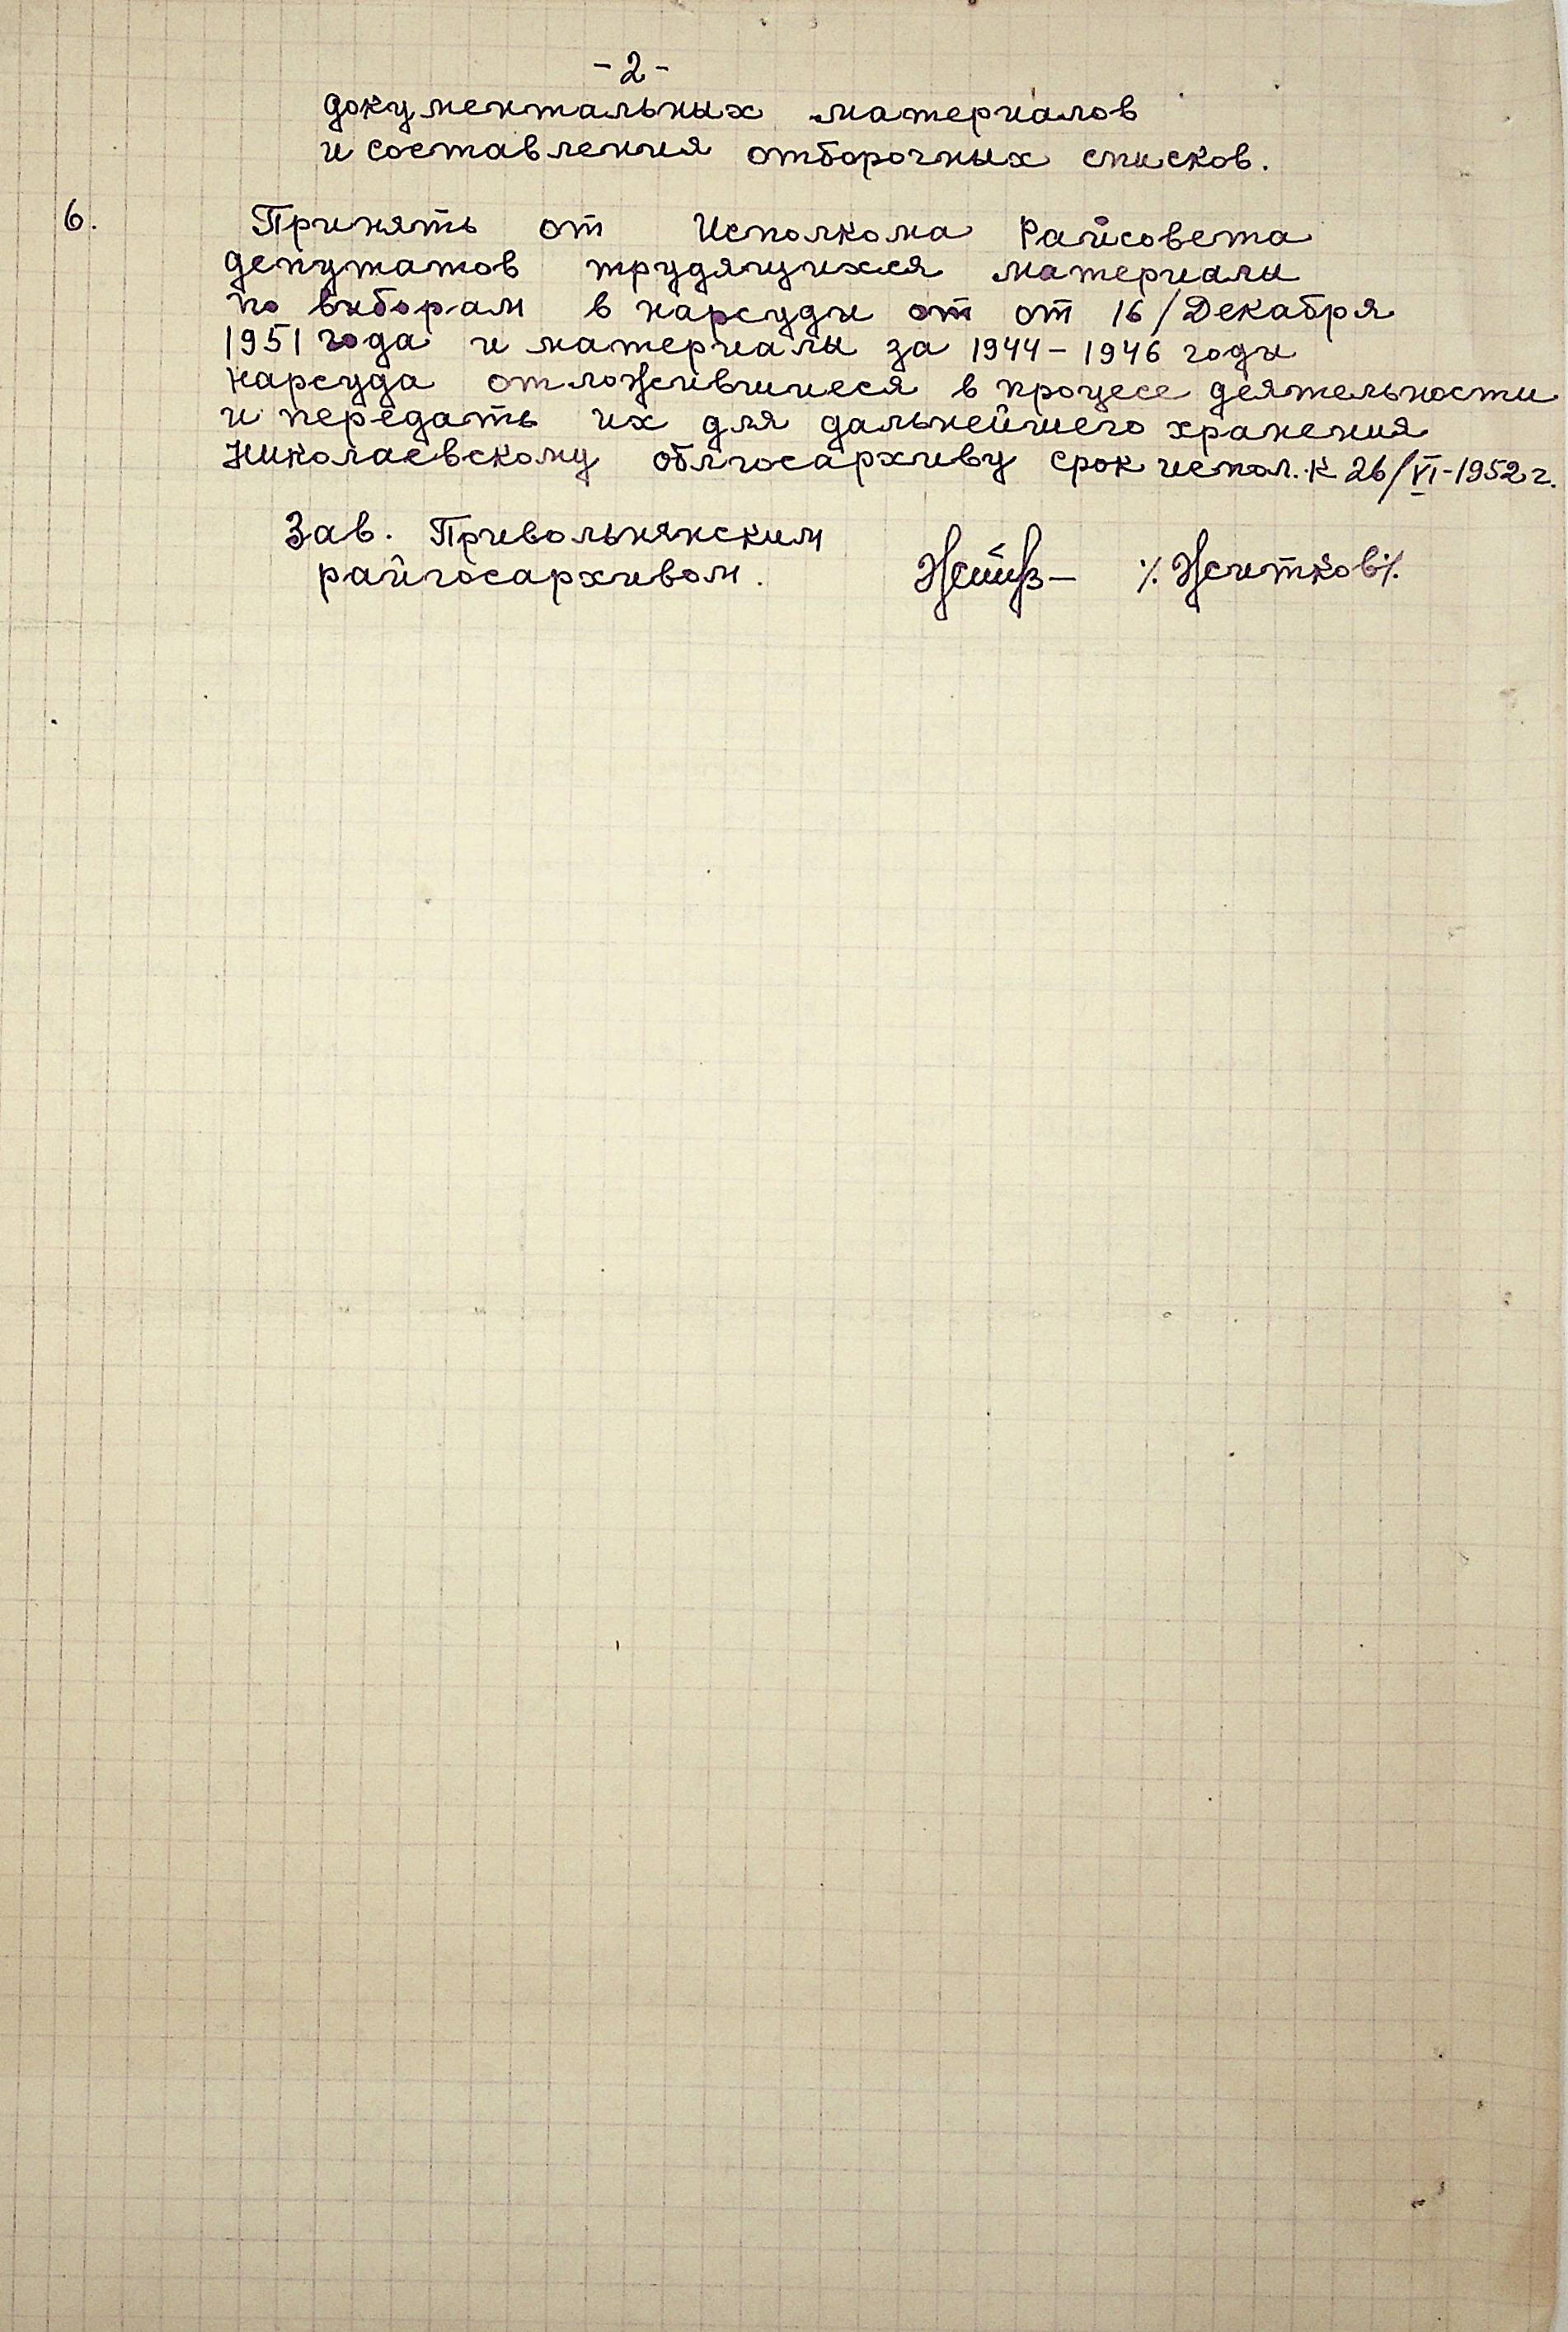 - 2 -
документальных материалов
и составления отборочных списков.
6. Принять от Исполкома Райсовета
депутатов трудящихся материалы
по выборам в нарсуды от от 16/Декабря
1951 года и материалы за 1944 - 1946 годы
нарсуда отложившиеся в процесе деятельности
и передать их для дальнейшего хранения
Николаевскому облгосархиву срок испол. к 26/VI-1952 г.
Зав. Привольнянским
райгосархивом. ٪Житков٪